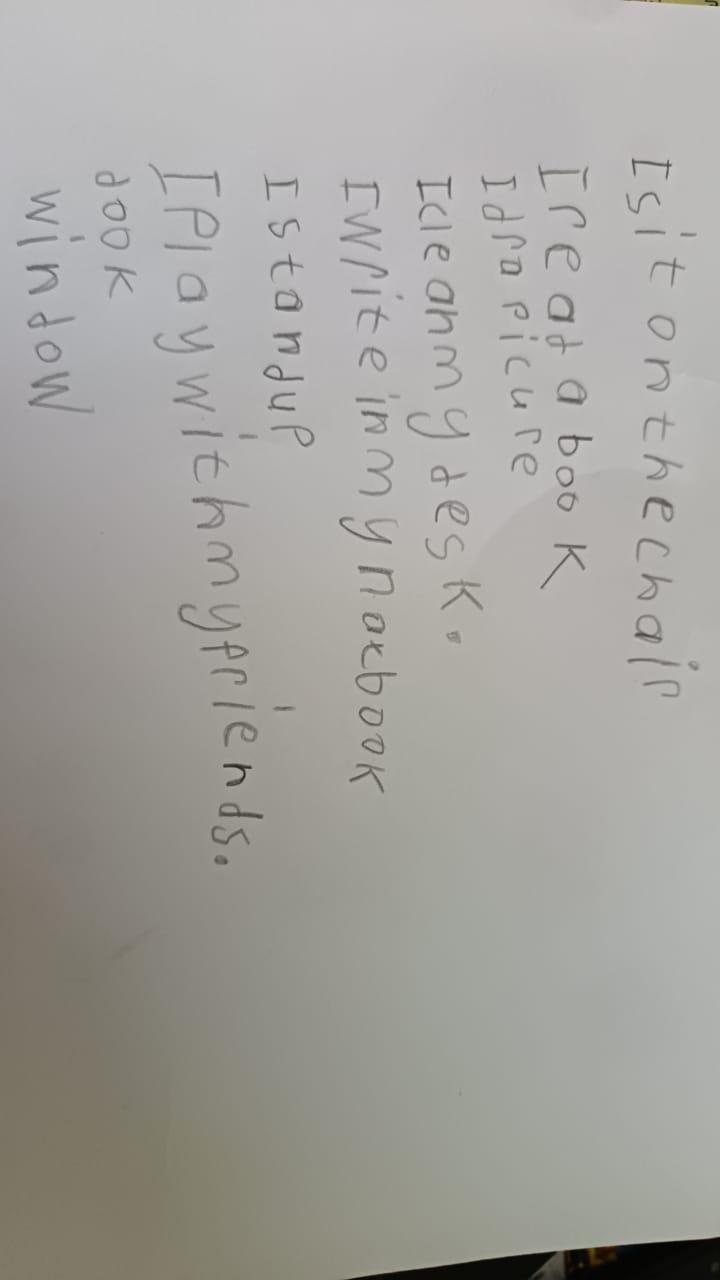 I sit onthechair
I read a book
Idra picure
Icleanmy desk.
Iwriteinmynoxbook
I standup
I Playwithmyfriends.
dook
window